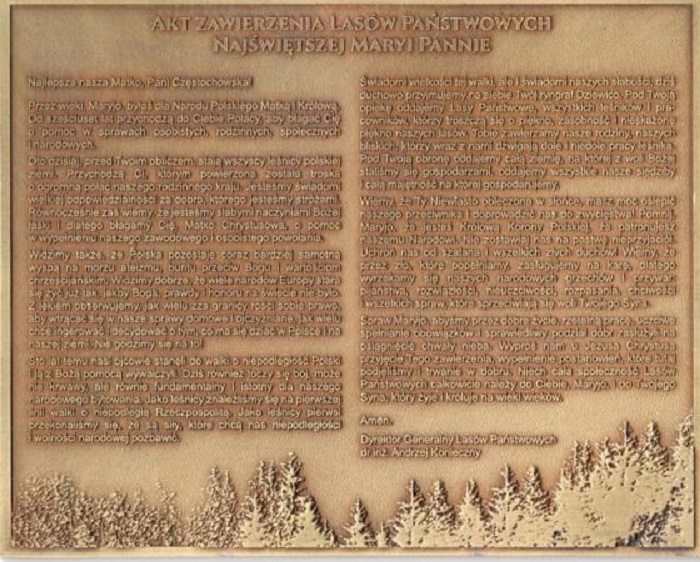 AKT ZAWIERZENIA LASÓW PAŃSTWOWYCH
NAJŚWIĘTSZEJ MARYI PANNIE
Najlepsza nasza Matko, Pani Częstochowska!
Przez wieki, Maryjo, byłaś dla Narodu Polskiego Matką i Królową.
Od sześciuset lat przychodzą do Ciebie Polacy, aby błagać Cię
o pomoc w sprawach osobistych, rodzinnych, społecznych
i narodowych.
Oto dzisiaj, przed Twoim obliczem, stają wszyscy leśnicy polskiej
ziemi. Przychodzą Ci, którym powierzona została troska
o ogromną połać naszego rodzinnego kraju. Jesteśmy świadomi
wielkiej odpowiedzialności za dobro, którego jesteśmy strażami.
Równocześnie zaś wiemy, że jesteśmy słabymi naczyniami Bożej
łaski i dlatego błagamy Cię, Matko Chrystusowa, o pomoc
w wypełnieniu naszego zawodowego i osobistego powołania.
Widzimy także, że Polska pozostaje coraz bardziej samotną
wyspą na morzu ateizmu, buntu przeciw Bogu i wartościom
chrześcijańskim. Widzimy dobrze, że wiele narodów Europy stara
się żyć już tak, jakby Boga, prawdy i honoru na świecie nie było.
Z lękiem obserwujemy, jak wielu zza granicy rości sobie prawo,
aby wtrącać się w nasze sprawy domowe i ojczyźniane, jak wielu
chce ingerować i decydować o tym, co ma się dziać w Polsce i na
naszej ziemi. Nie godzimy się na to!
Sto lat temu nasi ojcowie stanęli do walki o niepodległość Polski
i ją z Bożą pomocą wywalczyli. Dziś również toczy się bój, może
nie krwawy, ale równie fundamentalny i istotny dla naszego
narodowego bytowania. Jako leśnicy znaleźliśmy się na pierwszej
linii walki o niepodległą Rzeczpospolitą. Jako leśnicy pierwsi
przekonaliśmy się, że są siły, które chcą nas niepodległości
i wolności narodowej pozbawić.
Świadomi wielkości tej walki, ale i świadomi naszych słabości, dziś
duchowo przyjmujemy na siebie Twój ryngraf Dziewico. Pod Twoją
opiekę oddajemy Lasy Państwowe, wszystkich leśników i pra-
cowników, którzy troszczą się o piękno, zasobność i nieskażone
piękno naszych lasów. Tobie zawierzamy nasze rodziny, naszych
bliskich, którzy wraz z nami dźwigają dole i niedole pracy leśnika.
Pod Twoją obronę oddajemy całą ziemię, na której z woli Bożej
staliśmy się gospodarzami, oddajemy wszystkie nasze siedziby
i całą majętność na której gospodarujemy.
Wiemy, że Ty Niewiasto obleczona w słońce, masz moc oślepić
naszego przeciwnika i doprowadzić nas do zwycięstwa! Pomnij,
Maryjo, że jesteś Królową Korony Polskiej, że patronujesz
naszemu Narodowi. Nie zostawiaj nas na pastwę nieprzyjaciół.
Uchroń nas od szatana i wszelkich złych duchów! Wiemy, że
przez zło, które popełniamy, zasługujemy na karę, dlatego
wyrzekamy się naszych narodowych grzechów i przywar:
pijaństwa, rozwiązłości, nieuczciwości, rozrzutności, chciwości
i wszelkich spraw, które sprzeciwiają się woli Twojego Syna.
Spraw Maryjo, abyśmy przez dobre życie, rzetelną pracę, uczciwe
spełnianie obowiązków i sprawiedliwy podział dóbr zasłużyli na
osiągnięcie chwały nieba. Wyproś nam u Jezusa Chrystusa
przyjęcie Tego zawierzenia, wypełnienie postanowień, które tutaj
podjęliśmy i trwanie w dobru. Niech cała społeczność Lasów
Państwowych całkowicie należy do Ciebie, Maryjo, i do Twojego
Syna, który żyje i króluje na wieki wieków.
Amen.
Dyrektor Generalny Lasów Państwowych
dr inż. Andrzej Konieczny